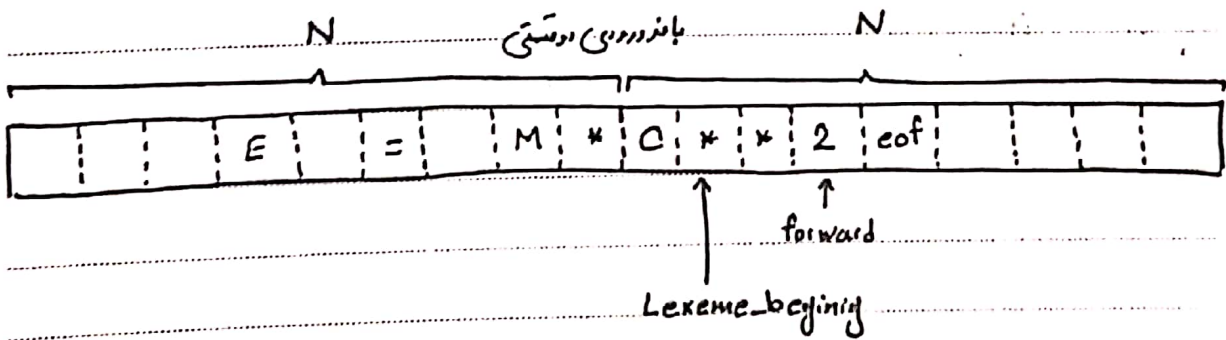 N بافر ورودی دو قسمتی N
E = M * C * * 2 eof
forward
Lexeme_begining